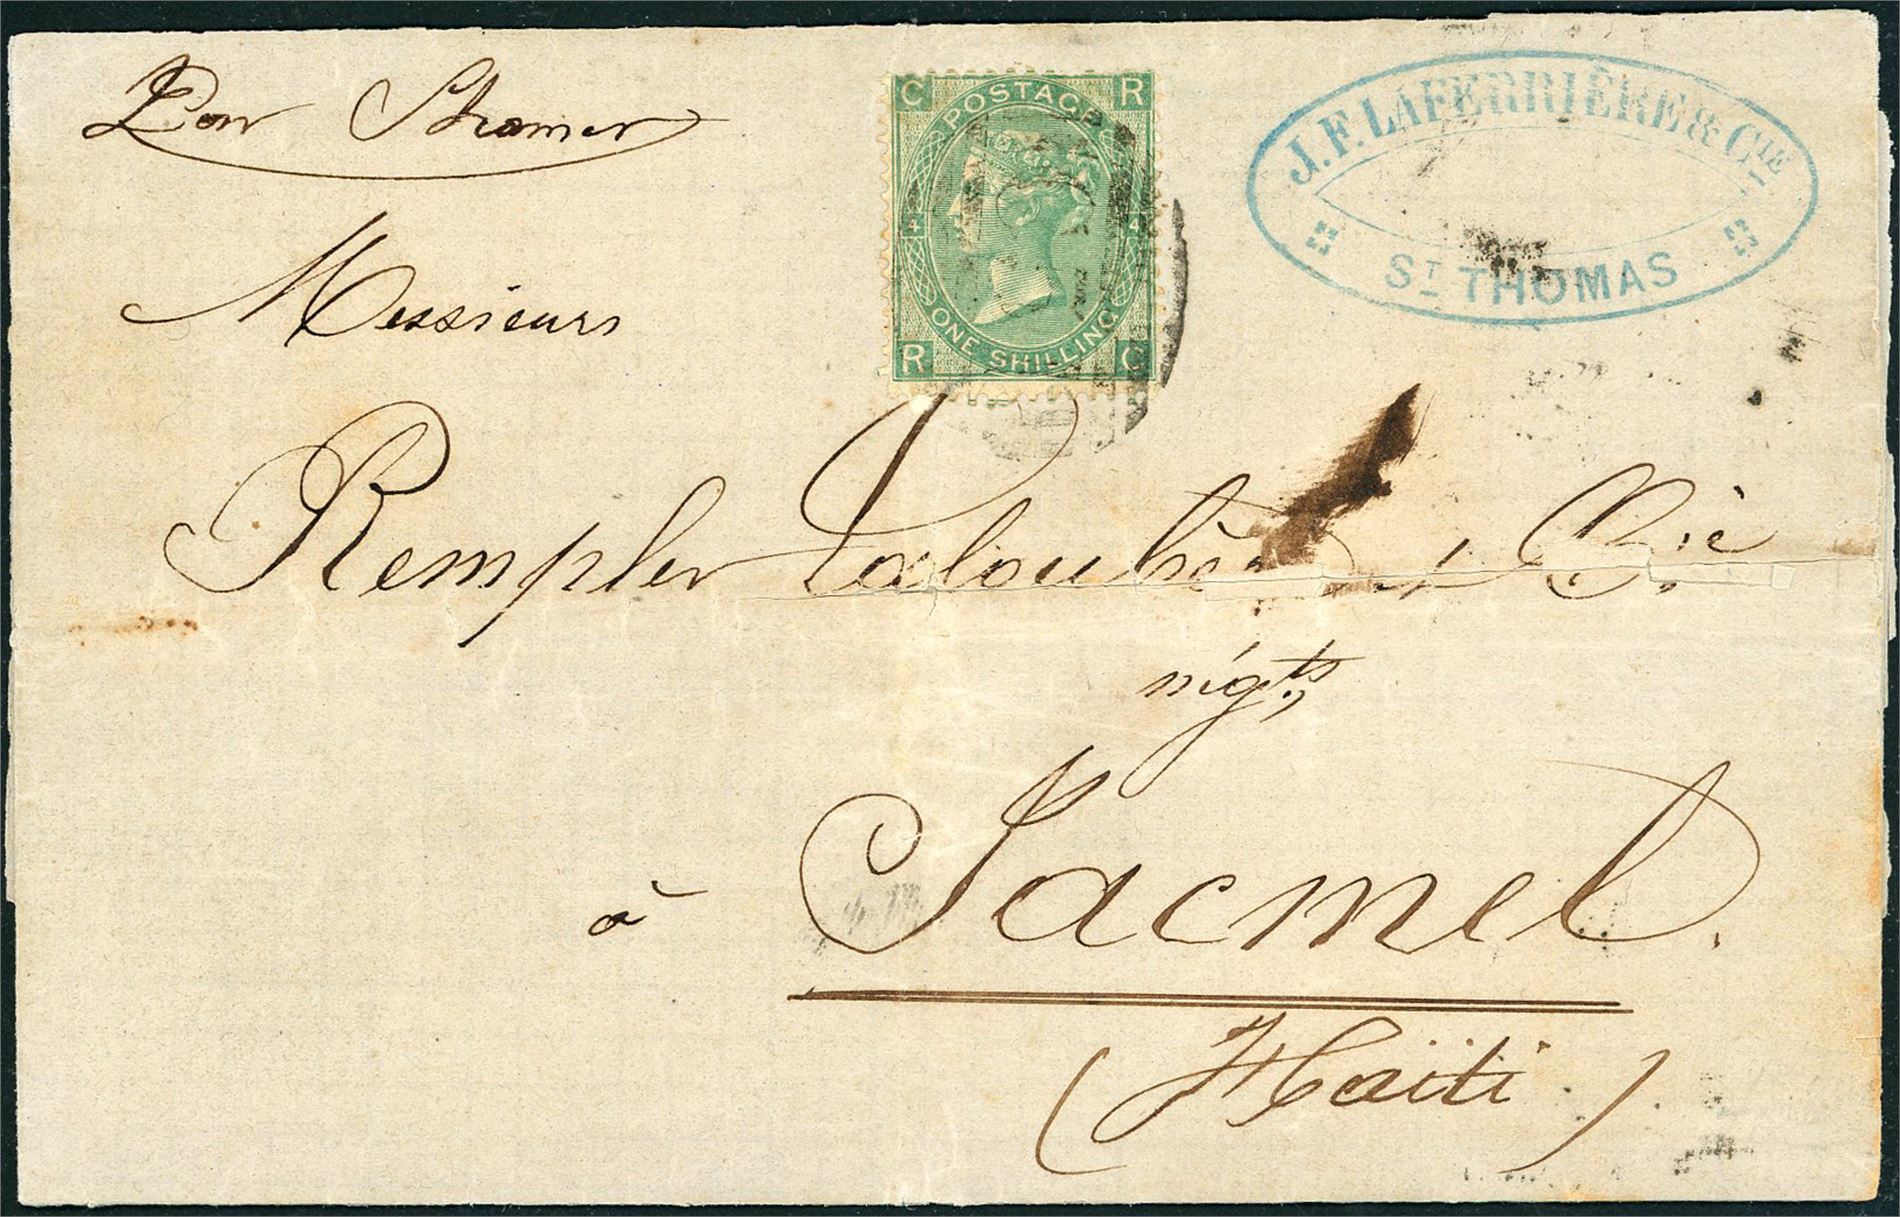 Par Steamer
C POSTAGE R
4 4
ONE SHILLING
R C
J. F. LAFERRIÈRE & CIE
ST THOMAS
Messieurs
Rempler Laloubère & Cie
nígts,
à Jacmel.
(Haïti)